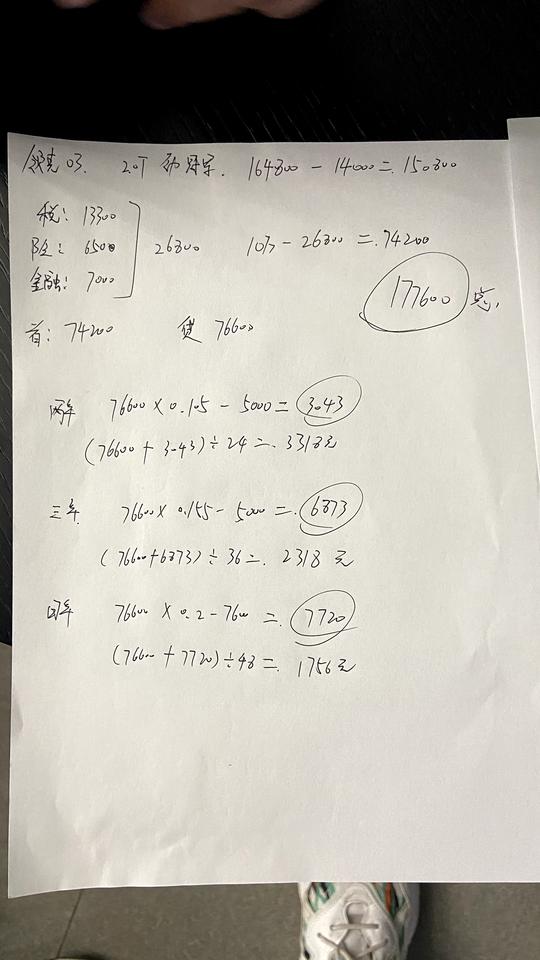 领克03. 2.0T 劲 冠军. 164800 - 14000 =. 150800
税: 13300
保: 6500 26800 10万 - 26800 =. 74200
金融: 7000
177600 总.
首: 74200 贷 76600
两年 76600 × 0.105 - 5000 = 3043
(76600 + 3043) ÷ 24 =. 3318元
三年. 76600 × 0.155 - 5000 =. 6873
(76600+6873) ÷ 36 =. 2318 元
四年 76600 × 0.2 - 7600 =. 7720
(76600 + 7720) ÷ 48 =. 1756元